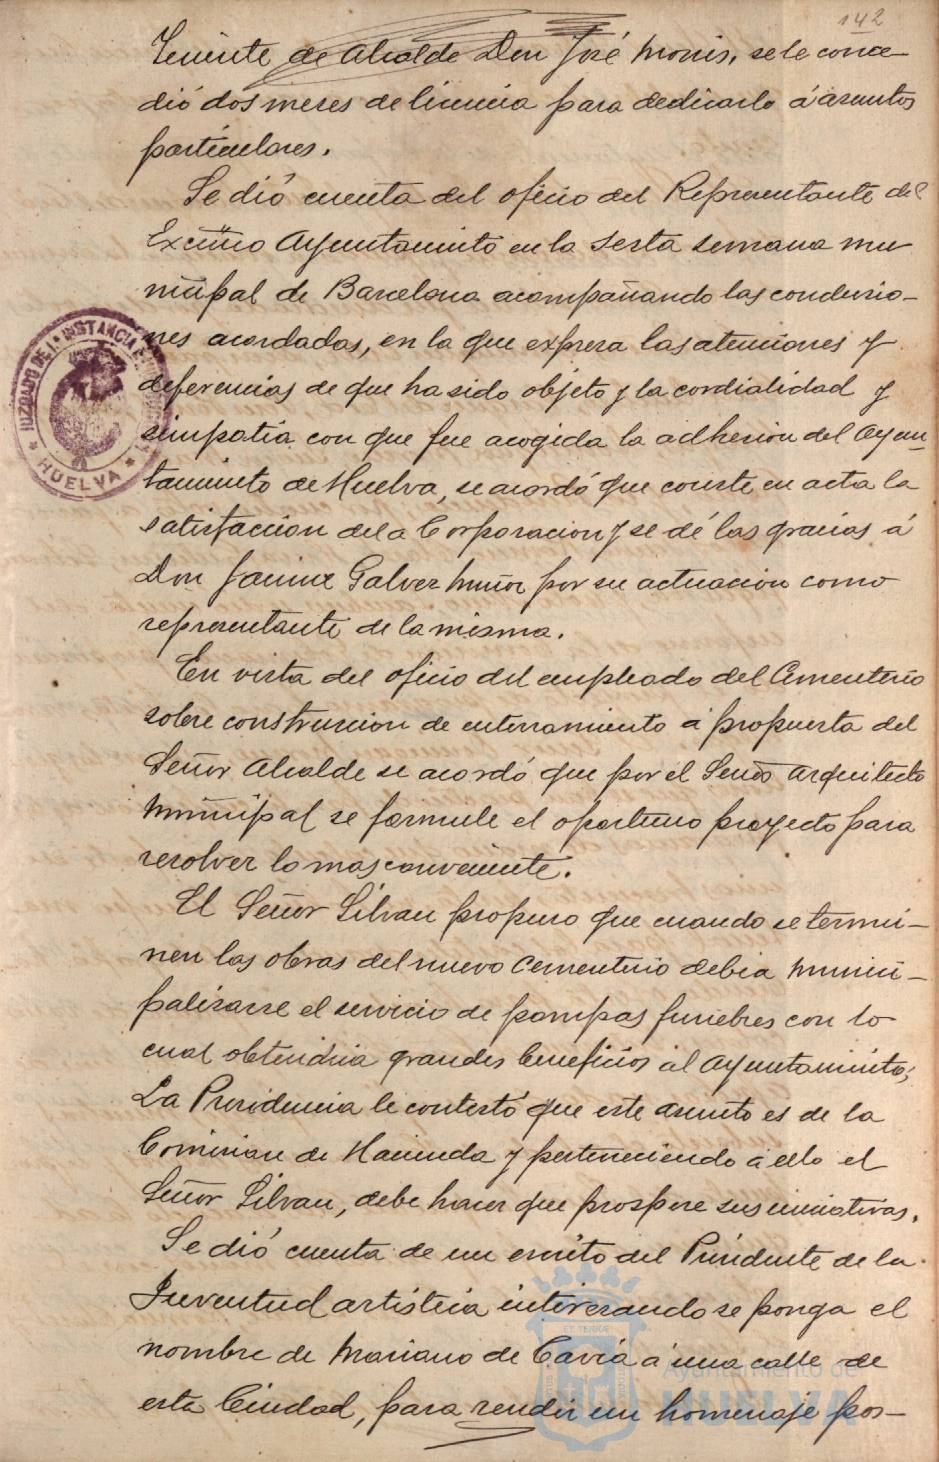 142
Teniente de Alcalde Don José Monis, se le conce-
dió dos meses de licencia para dedicarlo á asuntos
particulares.
Se dió cuenta del oficio del Representante del
Excmo Ayuntamiento en la sesta semana mu
nicipal de Barcelona acompañando las conclusio-
nes acordadas, en la que expresa las atenciones y
deferencias de que ha sido objeto y la cordialidad y
simpatia con que fue acogida la adhesion del Ayun-
tamiento de Huelva, se acordó que conste en acta la
satisfaccion de la Corporacion y se dé las gracias á
Don Jaime Galvez Muñoz por su actuacion como
representante de la misma.
En vista del oficio del empleado del Cementerio
sobre construccion de enterramiento á propuesta del
Señor Alcalde se acordó que por el Señor Arquitecto
Municipal se formule el oportuno proyecto para
resolver lo mas conveniente.
El Señor Silvan propuso que cuando se termi-
nen las obras del nuevo Cementerio debia munici-
palizarse el servicio de pompas funebres con lo
cual obtendria grandes beneficios el Ayuntamiento;
La Presidencia le contestó que este asunto es de la
Comision de Hacienda y perteneciendo á ello el
Señor Silvan, debe hacer que prospere sus iniciativas.
Se dió cuenta de un escrito del Presidente de la
Juventud artistica interesando se ponga el
nombre de Mariano de Cavia á una calle de
esta Ciudad, para rendir un homenaje pos-
JUZGADO DE 1ª INSTANCIA E
HUELVA
Ayuntamiento de
HUELVA